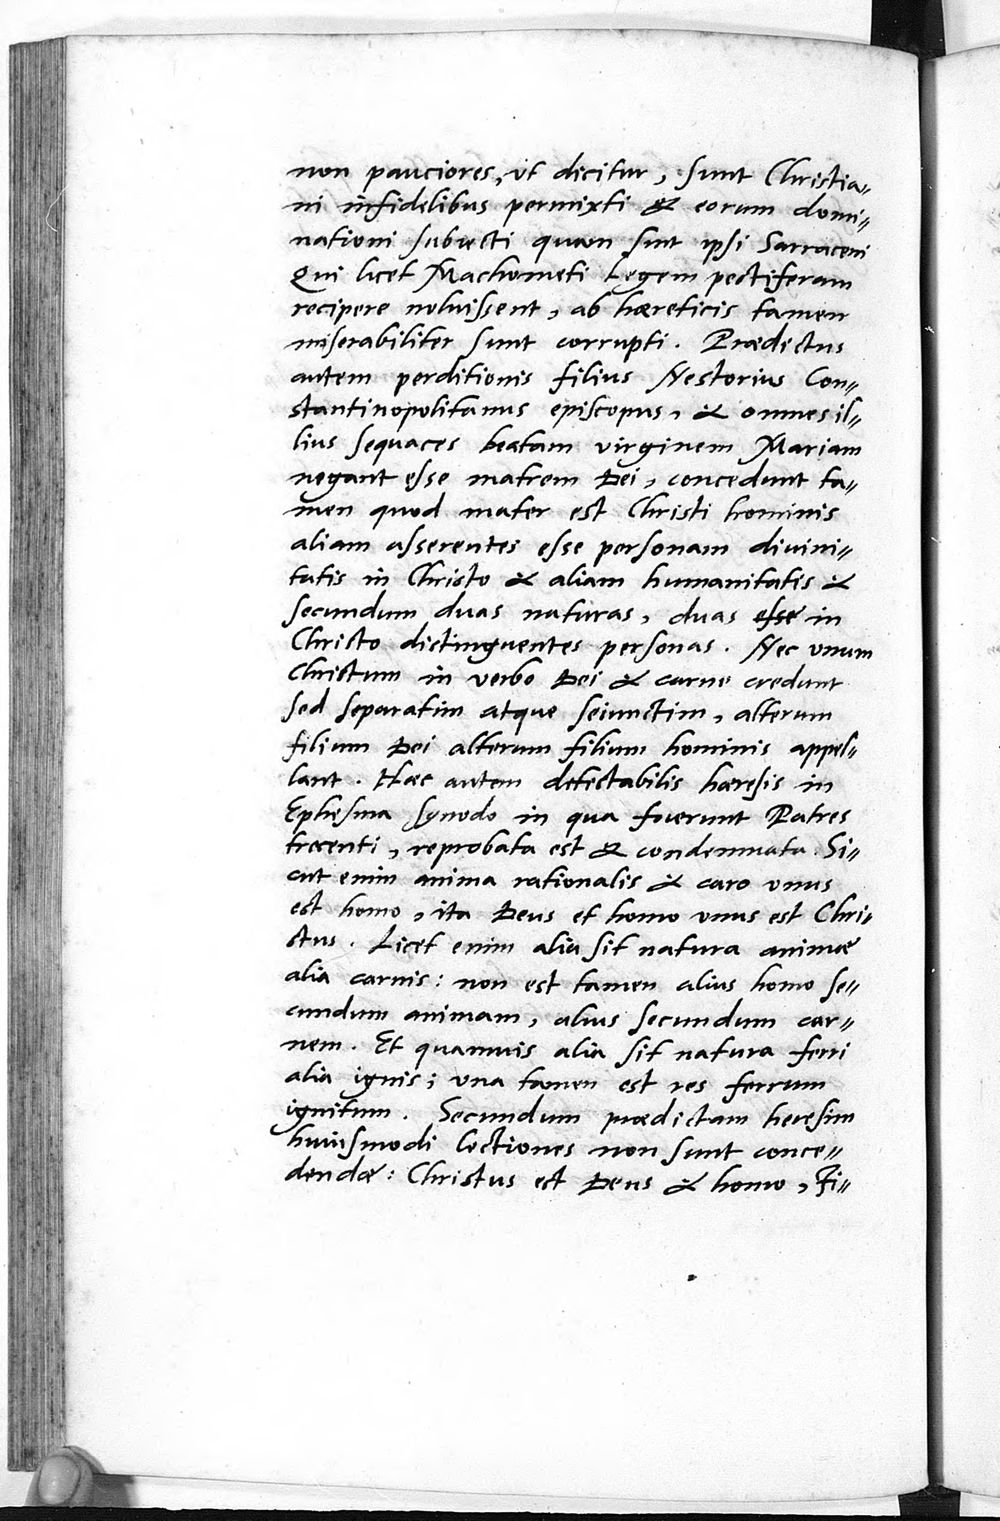 non pauciores, ut dicitur, sunt Christia„
ni infidelibus permixti & eorum domi„
nationi subiecti quam sint ipsi Sarraceni
Qui licet Machometi Legem pestiferam
recipere noluissent, ab hæreticis tamen
miserabiliter sunt corrupti. Prædictus
autem perditionis filius Nestorius Con„
stantinopolitanus episcopus, & omnes il„
lius sequaces beatam virginem Mariam
negant esse matrem Dei, concedunt ta„
men quod mater est Christi hominis
aliam asserentes esse personam divini„
tatis in Christo & aliam humanitatis &
secundum duas naturas, duas esse in
Christo distinguentes personas. Nec unum
Christum in verbo Dei & carne credunt
sed separatim atque seiunctim, alterum
filium Dei alterum filium hominis appel„
lant. Hæc autem detestabilis hæresis in
Ephesina synodo in qua fuerunt Patres
trecenti, reprobata est & condemnata. Si„
cut enim anima rationalis & caro unus
est homo, ita Deus et homo unus est Chri„
stus. Licet enim alia sit natura animæ
alia carnis: non est tamen alius homo se„
cundum animam, alius secundum car„
nem. Et quamvis alia sit natura ferri
alia ignis; una tamen est res ferrum
ignitum. Secundum prædictam heresim
huiusmodi Lectiones non sunt conce„
dendæ: Christus est Deus & homo, Fi„